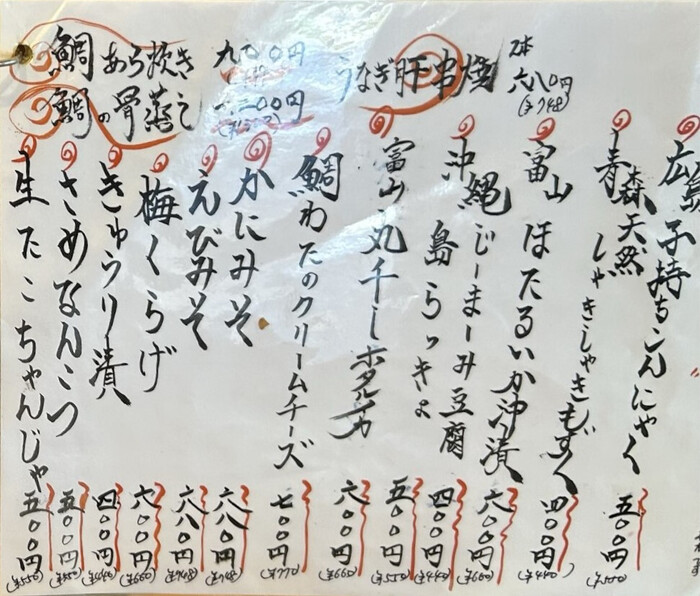 鯛 あら炊き 九〇〇円
鯛の骨蒸し 一二〇〇円
うなぎ肝串焼 2本 六八〇円 (¥748)
広島 子持ちこんにゃく 五〇〇円 (¥550)
青森天然 しゃきしゃきもずく 四〇〇円 (¥440)
富山 ほたるいか沖漬 六〇〇円 (¥660)
沖縄 じーまーみ豆腐 四〇〇円 (¥440)
島らっきょ 五〇〇円 (¥550)
富山 丸干しホタルイカ 六〇〇円 (¥660)
鯛わたのクリームチーズ 七〇〇円 (¥770)
かにみそ 六八〇円 (¥748)
えびみそ 六八〇円 (¥748)
梅くらげ 六〇〇円 (¥660)
きゅうり漬 四〇〇円 (¥440)
さめなんこつ 五〇〇円 (¥550)
生たこちゃんじゃ 五〇〇円 (¥550)